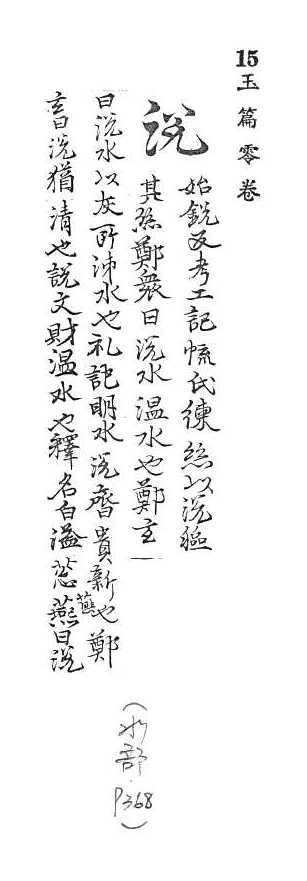 15 玉篇零卷
涗
始銳反考工記㡛氏練絲以涗漚
其絲鄭衆曰涗水温水也鄭玄
曰涗水以灰所泲水也礼記明水涗齊貴新也鄭
玄曰涗猶清也說文財温水也釋名白溢葱燕曰涗
(水部 P368)